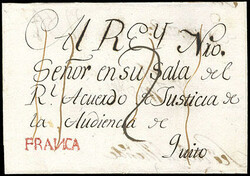 A REY Nro.
Señor en su Sala del
Rl. Acuerdo y Justicia de
la Audiencia de
Quito
FRANCA